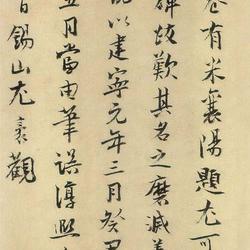 卷有米襄陽題尤可
碑故歎其名之磨滅
以建寧元年三月癸丑
五月當由筆誤淳熙
日錫山尤袤觀